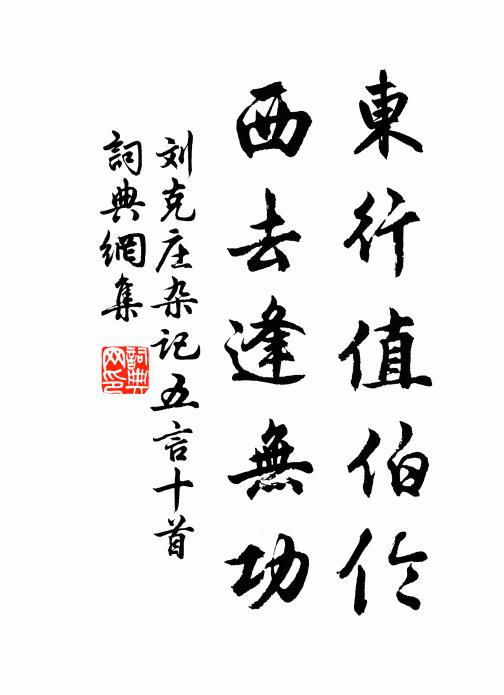 東行值伯伦
西去逢無功
刘克庄杂记五言十首
詞典網集
詞典网印